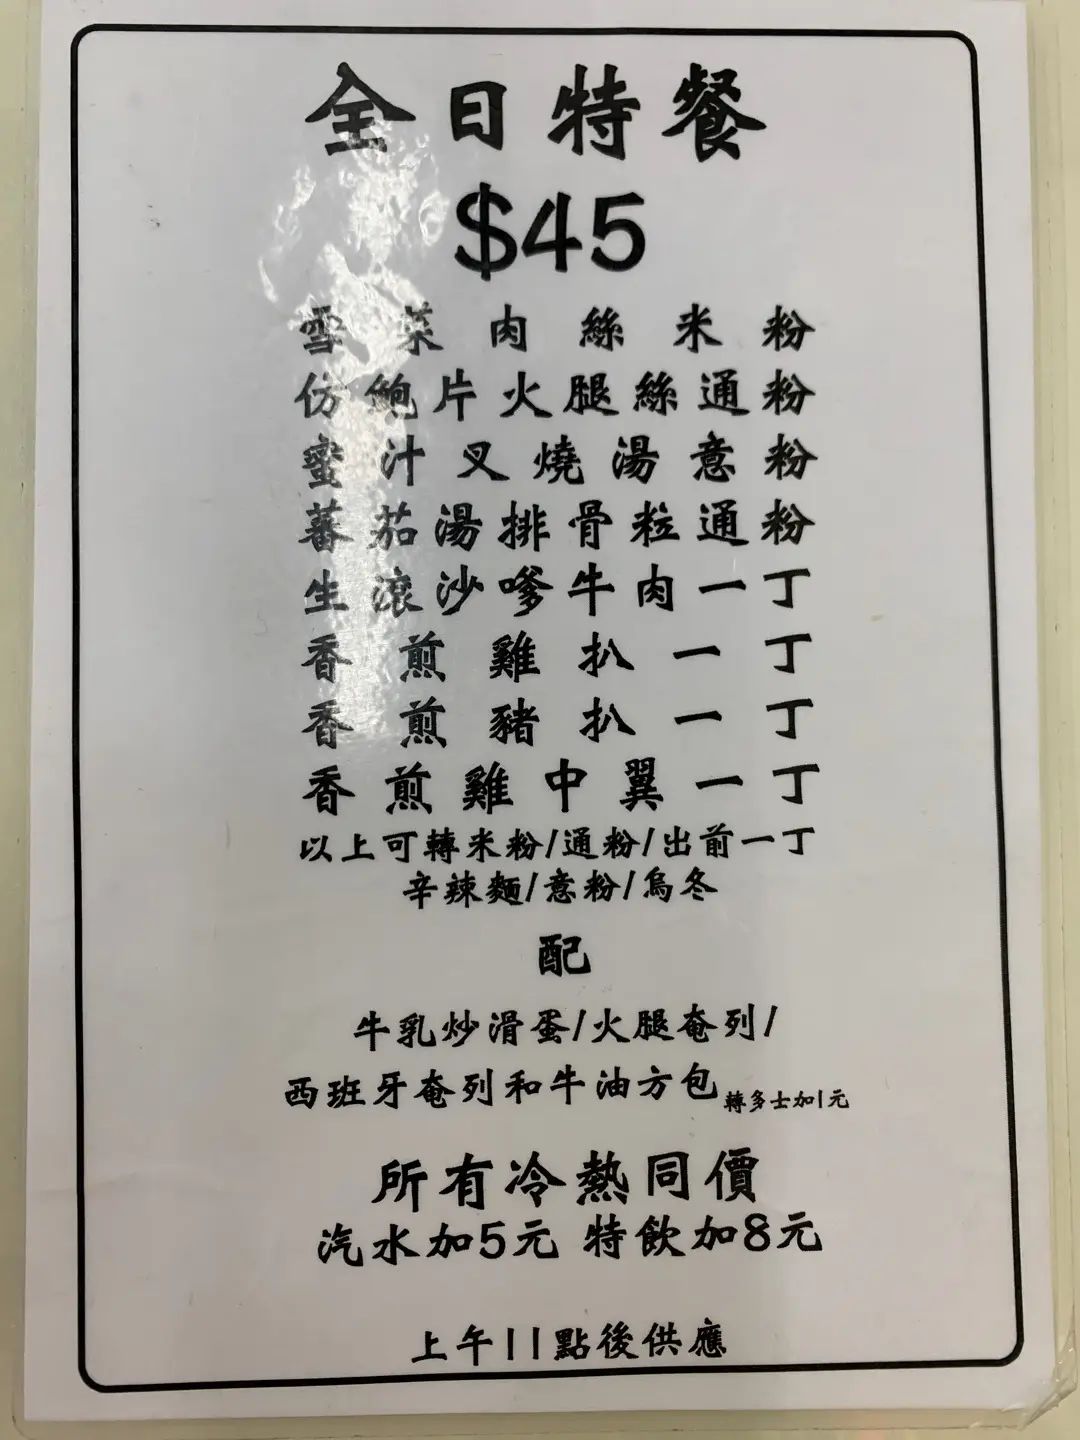 全日特餐
$45
雪菜肉絲米粉
仿鮑片火腿絲通粉
蜜汁叉燒湯意粉
蕃茄湯排骨粒通粉
生滾沙嗲牛肉一丁
香煎雞扒一丁
香煎豬扒一丁
香煎雞中翼一丁
以上可轉米粉/通粉/出前一丁
辛辣麵/意粉/烏冬
配
牛乳炒滑蛋/火腿奄列/
西班牙奄列和牛油方包轉多士加1元
所有冷熱同價
汽水加5元 特飲加8元
上午11點後供應